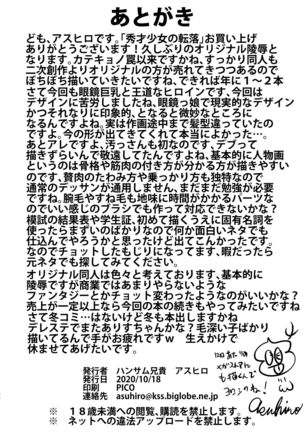 あとがき
ども、アスヒロです。「秀才少女の転落」お買い上げ
ありがとうございます！久しぶりのオリジナル陵辱と
なります。カテキョノ罠以来ですかね、すっかり同人も
二次創作よりオリジナルの方が売れてきつつあるので
ぼちぼち描いていきたいですね、できれば年に１～２本
さて今回も眼鏡巨乳と王道なヒロインです、今回は
デザインに苦労しましたね、眼鏡っ娘で現実的なデザイン
かつそれなりに印象的、となると微妙なところに
なるんですよね。実は作画途中まで髪型違っていたの
ですよ。今の形が出てきてくれて本当によかった…。
あとアレですよ、汚っさんも初なのです、デブって
描きずらいんで敬遠してたんですよね、基本的に人物画
というのは骨格や筋肉の付き方が分かる方が描きやすい
のです、贅肉のたわみ方や乗っかり方も独特なので
通常のデッサンが通用しません、まだまだ勉強が必要
ですね。腋毛やすね毛も地味に時間がかかるパーツな
のでいい感じのブラシでも作って対応できないかな？
模試の結果表や学生証、初めて描くうえに固有名詞を
使ったらまずいのばかりなので何か面白いネタでも
仕込んでやろうかと思ったけど出てこんかったです。
なのでチョットしたもじりになってます、暇だったら
元ネタでも探してみてください。
オリジナル同人は色々と考えております、基本的に
陵辱ですが商業ではあまりやらないような
ファンタジーとかチョット変わったようなのがいいかな？
売上が一定以上なら今回の本の続きもやってみたいですね
さて冬コミ…はないけど冬も本出しますかね
デレステでまたありすちゃんかな？毛深い子ばかり
描いてるんで手がお疲れですｗ　生えかけで
休ませてあげたいです。
発行者　ハンサム兄貴　アスヒロ
発行日　2020/10/18
印刷　PICO
連絡先　asuhiro@kss.biglobe.ne.jp
※　１８歳未満への閲覧、購読を禁止します。
※　ネットへの違法アップロードを禁止します。
asuhiro